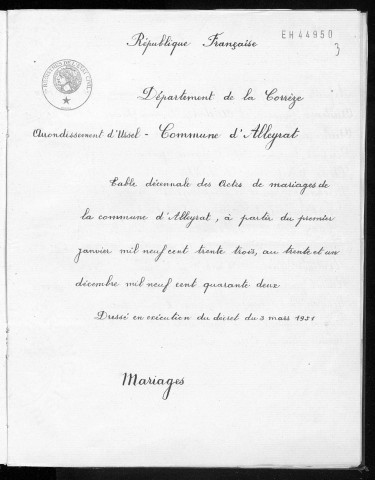 EH44950
3
République Française
Département de la Corrèze
Arrondissement d'Ussel - Commune d'Alleyrat
Table décennale des Actes de mariages de
la commune d'Alleyrat, à partir du premier
janvier mil neuf cent trente trois, au trente et un
décembre mil neuf cent quarante deux
Dressé en exécution du décret du 3 mars 1951
Mariages